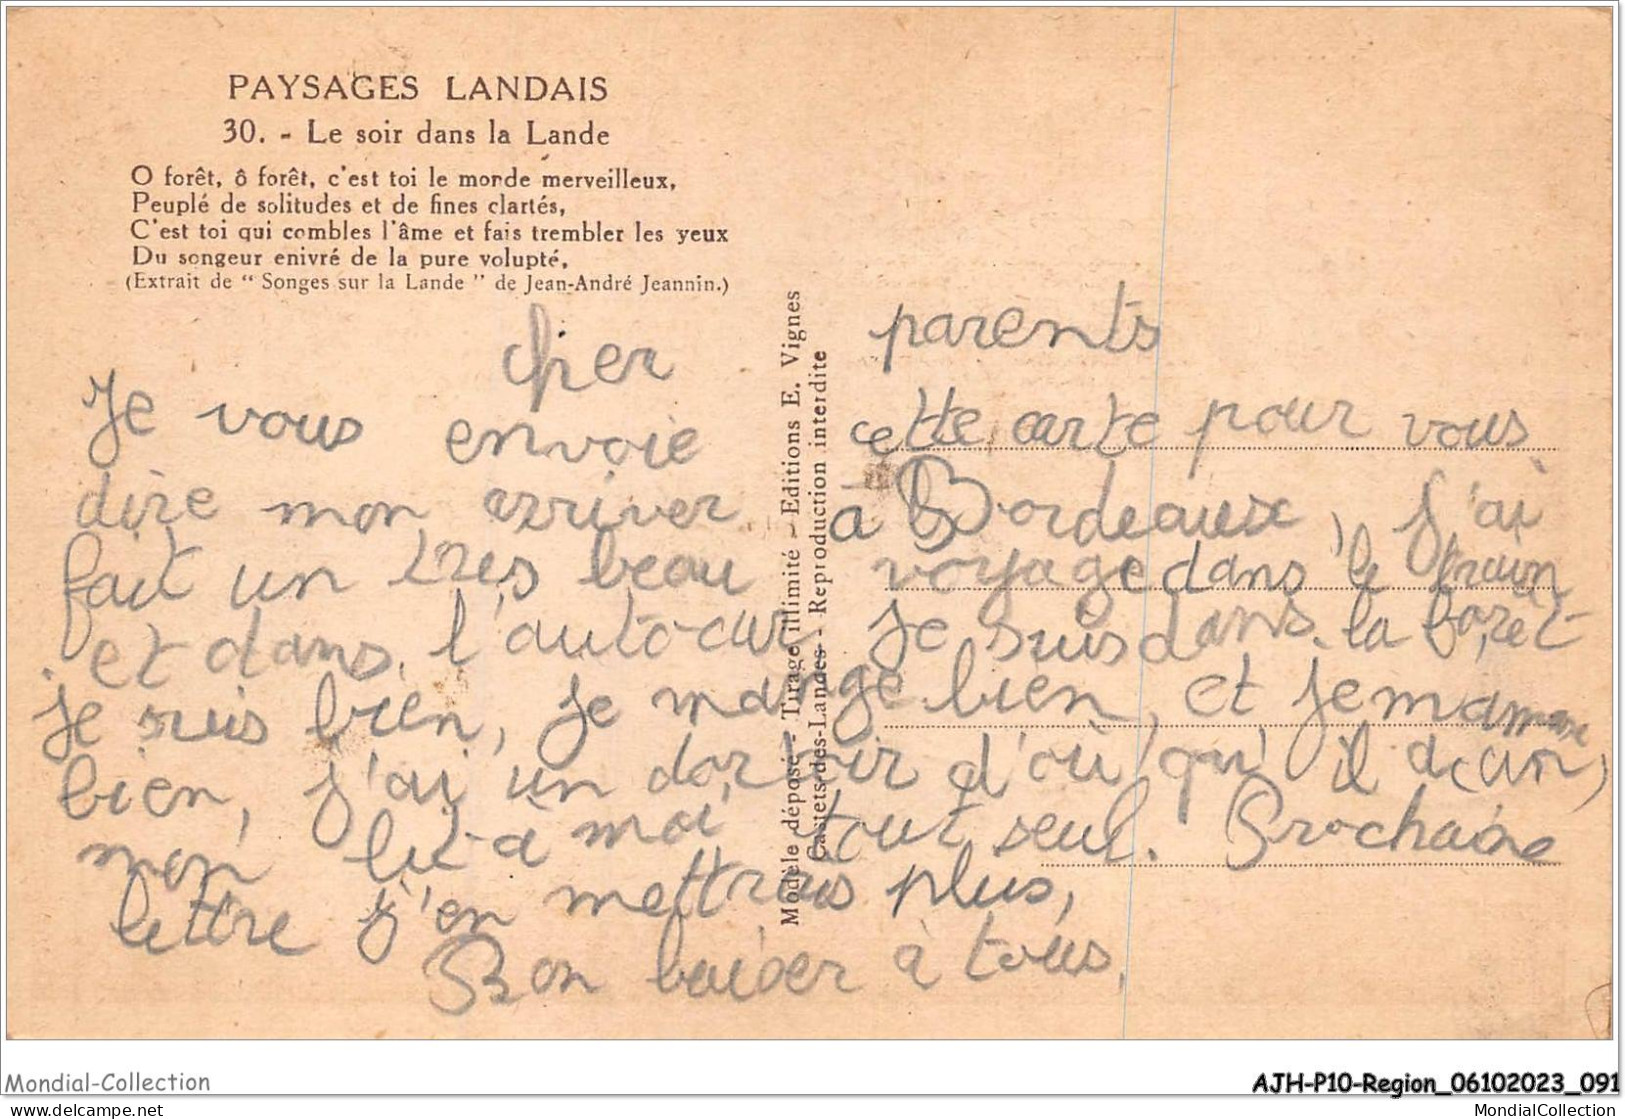 PAYSAGES LANDAIS
30. - Le soir dans la Lande
O forêt, ô forêt, c'est toi le monde merveilleux,
Peuplé de solitudes et de fines clartés,
C'est toi qui combles l'âme et fais trembler les yeux
Du songeur enivré de la pure volupté,
(Extrait de " Songes sur la Lande " de Jean-André Jeannin.)
cher parents
Je vous envoie cette carte pour vous
dire mon arriver à Bordeaux, j'ai
fait un tres beau voyage dans le train
et dans l'auto-car je suis dans la foret
je suis bien, je mange bien, et je m'amuse
bien, j'ai un dortoir d'où qu'il a (un)
mon lit à moi tout seul. Prochaine
lettre j'en mettrais plus,
Bon baiser à tous,
Modèle déposé - Tirage illimité - Editions E. Vignes
Castets-des-Landes - Reproduction interdite
Mondial-Collection
AJH-P10-Region_06102023_091
https://www.delcampe.net
MondialCollection